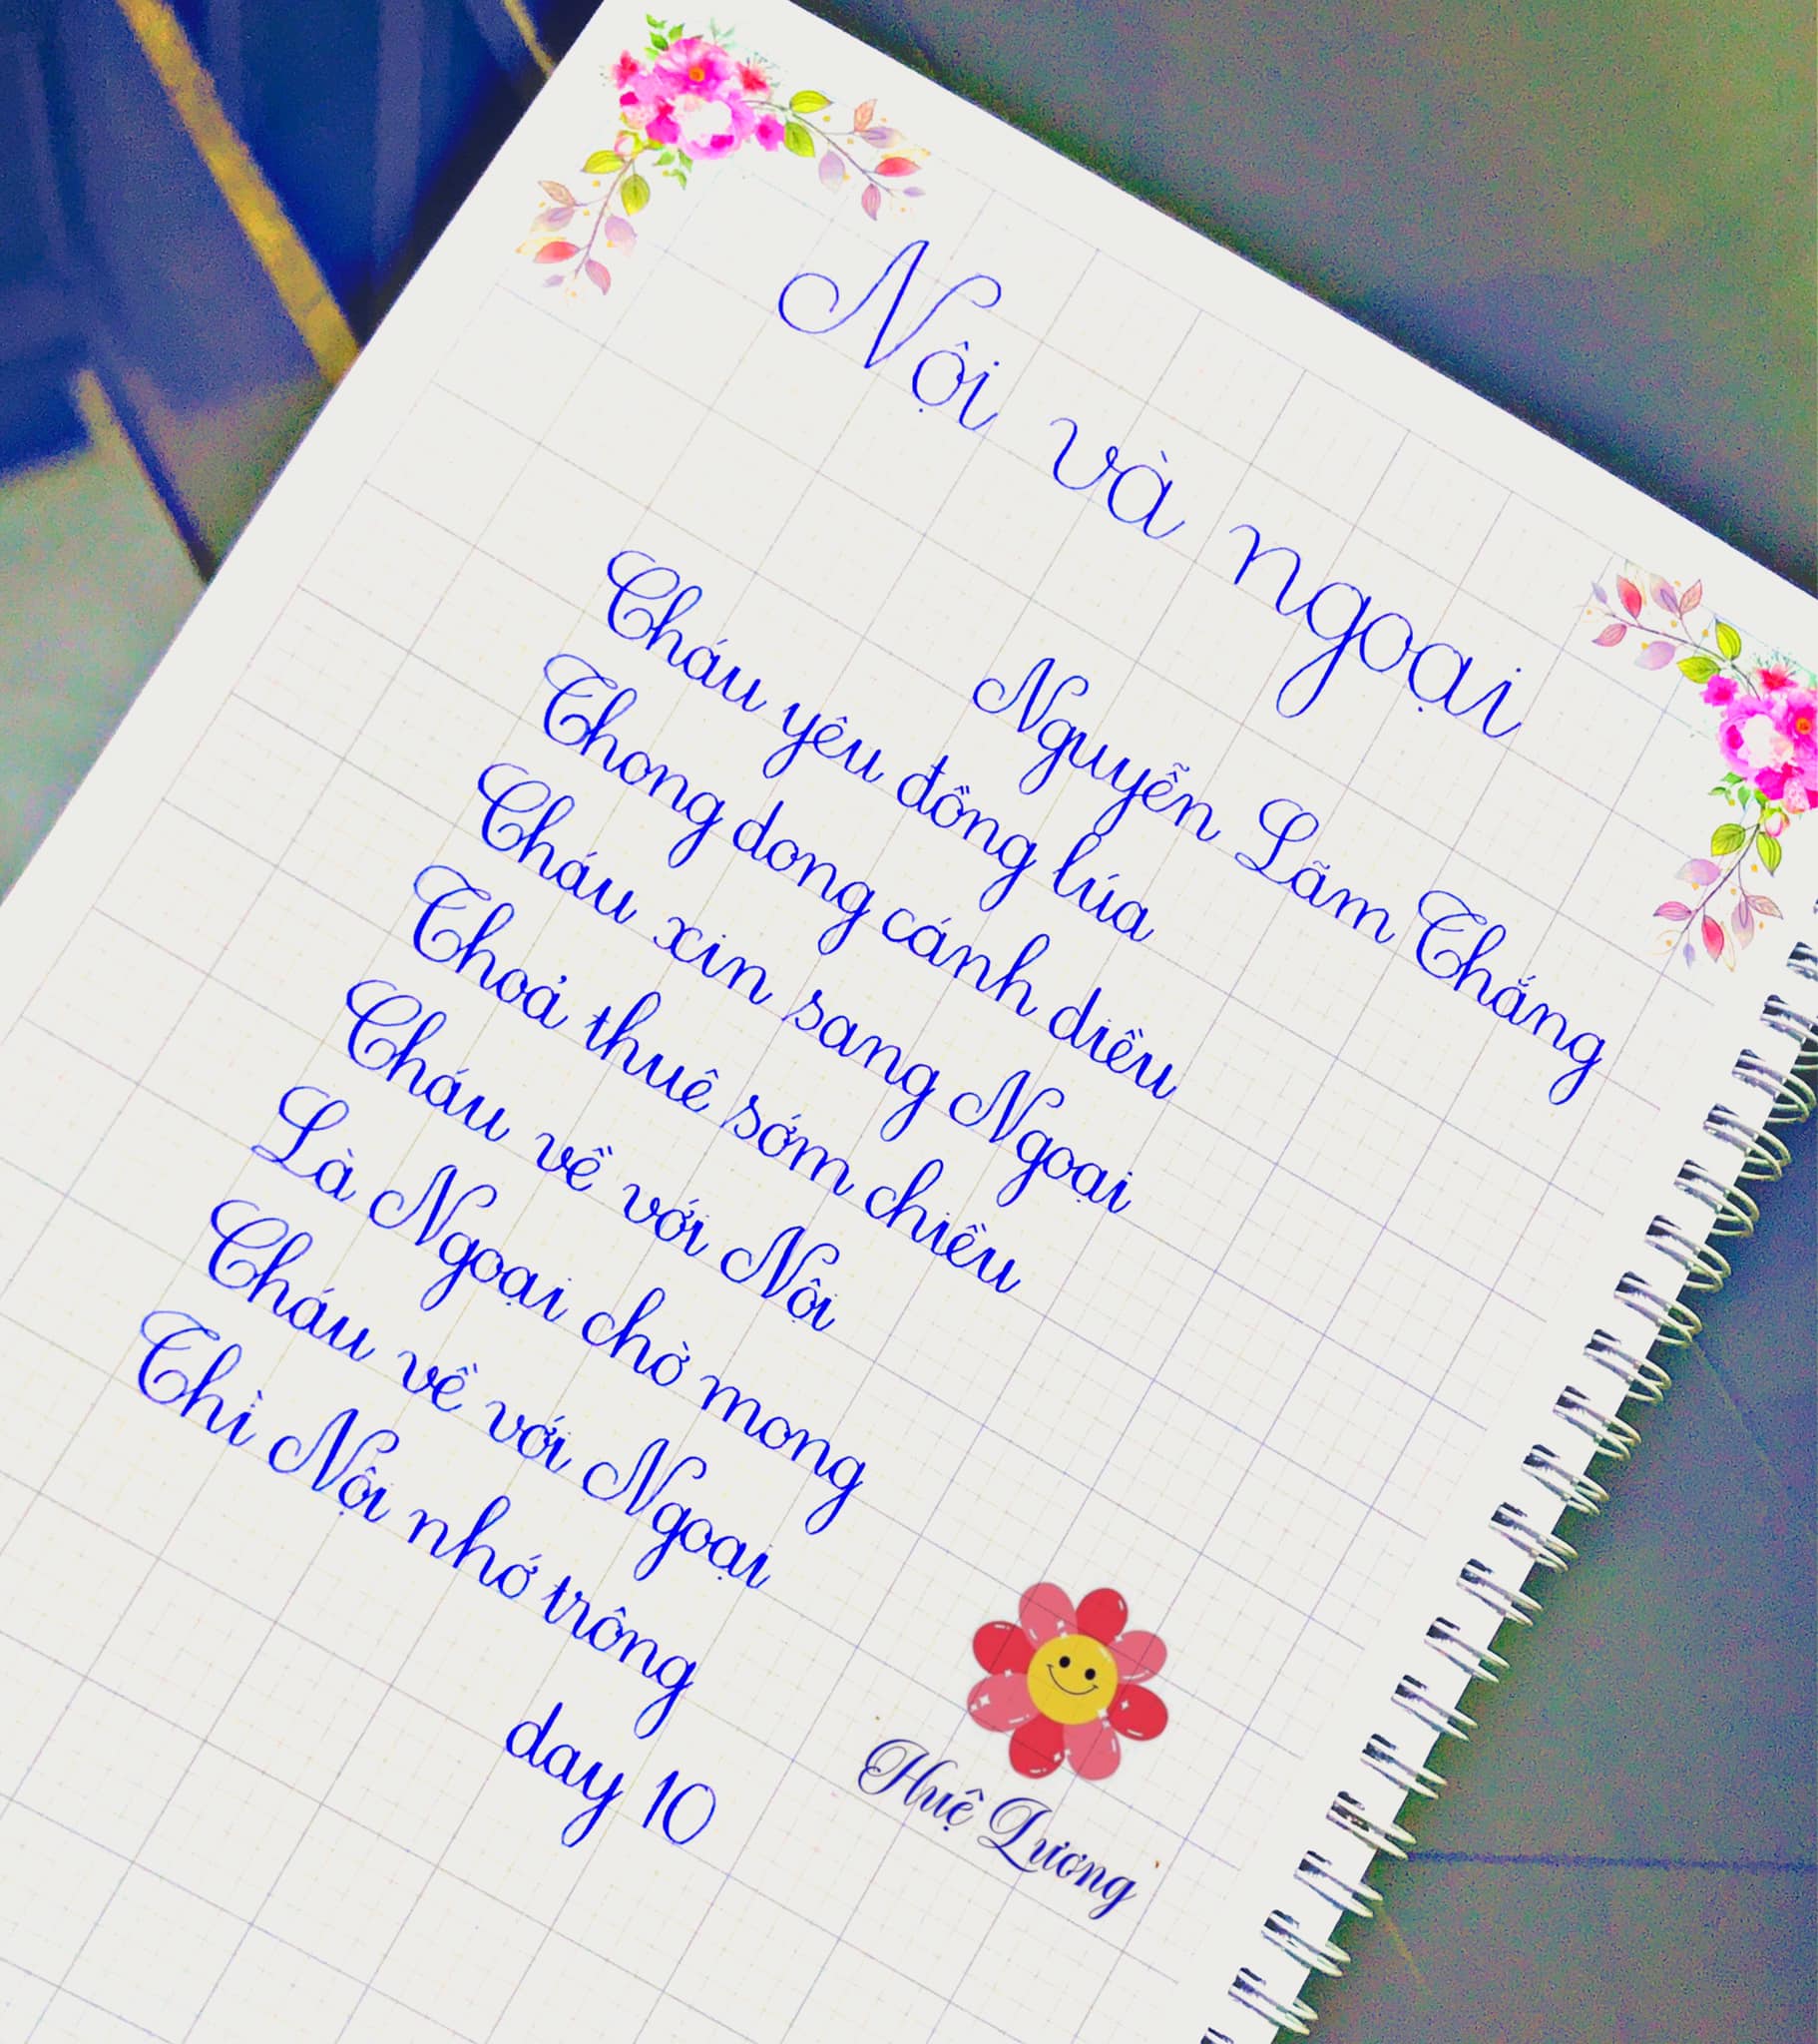 Nội và ngoại
Nguyễn Lãm Thắng
Cháu yêu đồng lúa
Thong dong cánh diều
Cháu xin sang Ngoại
Thoả thuê sớm chiều
Cháu về với Nội
Là Ngoại chờ mong
Cháu về với Ngoại
Thì Nội nhớ trông
day 10
Huệ Lương